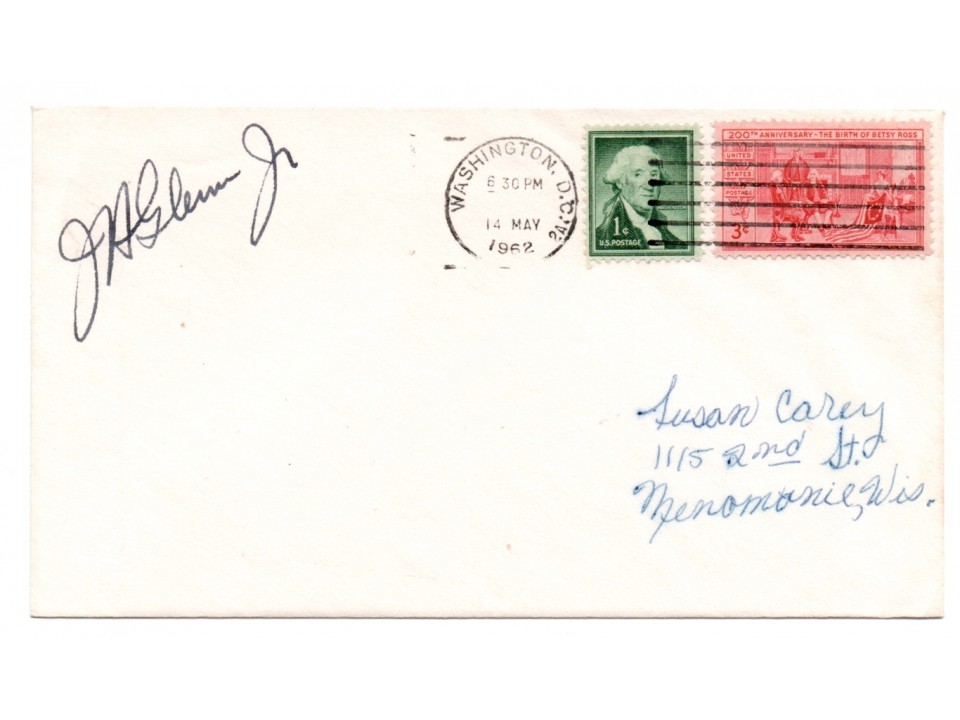 J H Glenn Jr
WASHINGTON, D.C.
6 30 PM
14 MAY
1962
1¢
U.S. POSTAGE
200TH ANNIVERSARY - THE BIRTH OF BETSY ROSS
UNITED
STATES
POSTAGE
3¢
Susan Carey
1115 2nd St.
Menomonie, Wis.